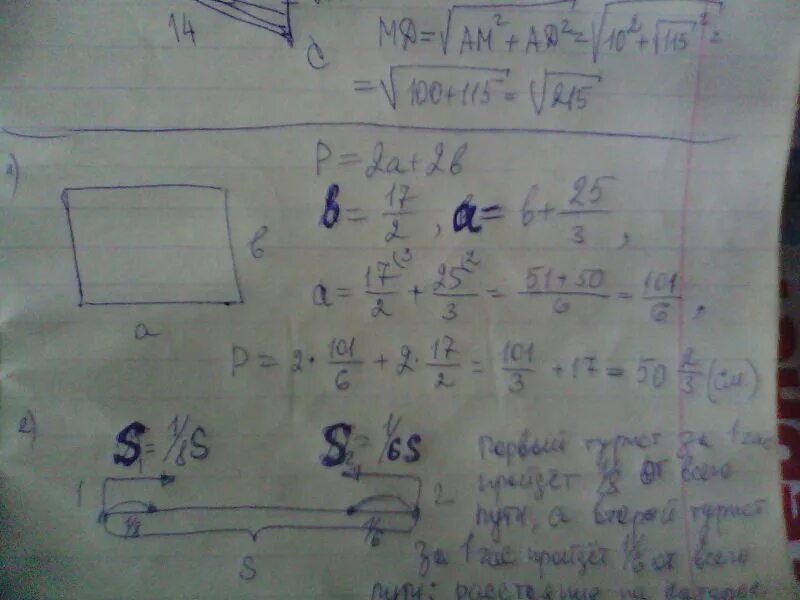 14
C
MD=√AM²+AD²=√10²+√115²=
=√100+115=√215
1)
P=2a+2b
b=17/2, a=b+25/3,
b
a=17/2+25/3=51+50/6=101/6,
a
P=2·101/6+2·17/2=101/3+17=50 2/3(см)
2)
S₁=1/8S
S₂=1/6S
Первый турист за 1 час
пройдёт 1/8 от всего
1
2
1/8
1/6
пути, а второй турист
S
за 1 час пройдёт 1/6 от всего
пути: расстояние на которое